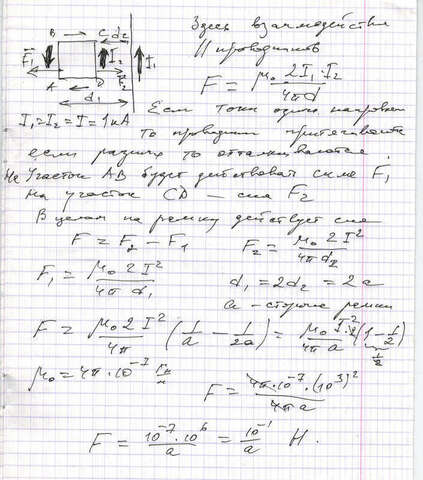 Здесь взаимодействие
|| проводников
F = μ₀ 2I₁·I₂ / 4πd
B C d₂
F₁ I₂ I₁
A D F₂
d₁
Если токи одного направлен
I₁=I₂=I=1кА то проводники притягиваются
если разных то отталкиваются.
На участок AB будет действовать сила F₁
на участок CD – сила F₂
В целом на рамку действует сила
F = F₂ – F₁ F₂ = μ₀ 2I² / 4πd₂
F₁ = μ₀ 2I² / 4π d₁ d₁ = 2d₂ = 2a
a – сторона рамки
F = μ₀ 2I² / 4π (1/a – 1/2a) = μ₀ I²·2 / 4πa (1 – 1/2) 1/2
μ₀ = 4π·10⁻⁷ Гн/м F = 4π·10⁻⁷·(10³)² / 4πa
F = 10⁻⁷·10⁶ / a = 10⁻¹ / a Н.